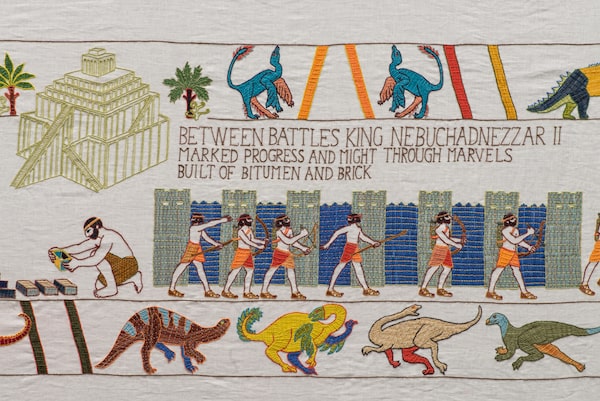 BETWEEN BATTLES KING NEBUCHADNEZZAR II
MARKED PROGRESS AND MIGHT THROUGH MARVELS
BUILT OF BITUMEN AND BRICK